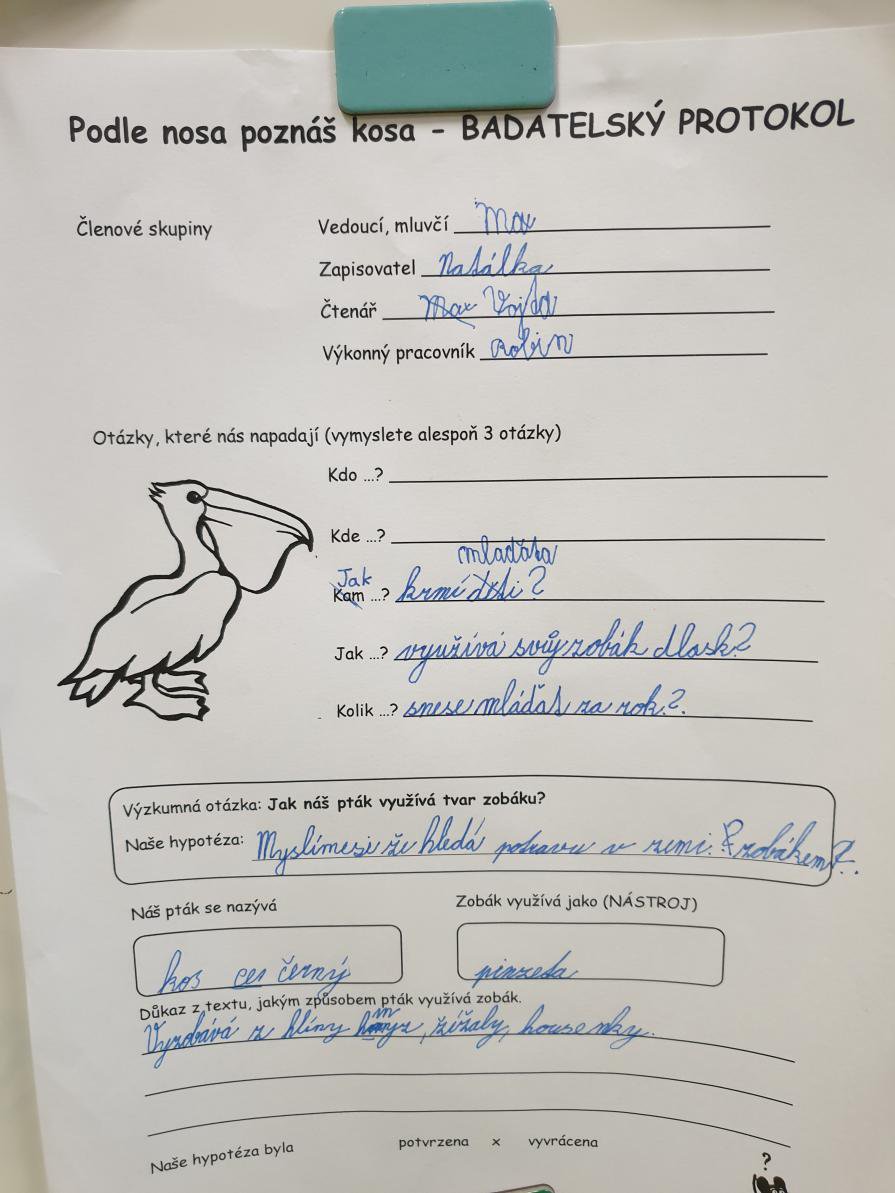 Podle nosa poznáš kosa - BADATELSKÝ PROTOKOL
Členové skupiny
Vedoucí, mluvčí Max
Zapisovatel Natálka
Čtenář Max Vojta
Výkonný pracovník Robin
Otázky, které nás napadají (vymyslete alespoň 3 otázky)
Kdo ...?
Kde ...?
mlaďata
Jak
Kam ...? krmí děti?
Jak ...? využívá svůj zobák dlask?
Kolik ...? snese mláďat za rok?.
Výzkumná otázka: Jak náš pták využívá tvar zobáku?
Naše hypotéza: Myslímesi že hledá potravu v zemi. zobákem
Náš pták se nazývá
Zobák využívá jako (NÁSTROJ)
kos čer černý
pinzeta
Důkaz z textu, jakým způsobem pták využívá zobák.
Vyzobává z hlíny hmyz, žížaly, housenky.
Naše hypotéza byla potvrzena x vyvrácena
?